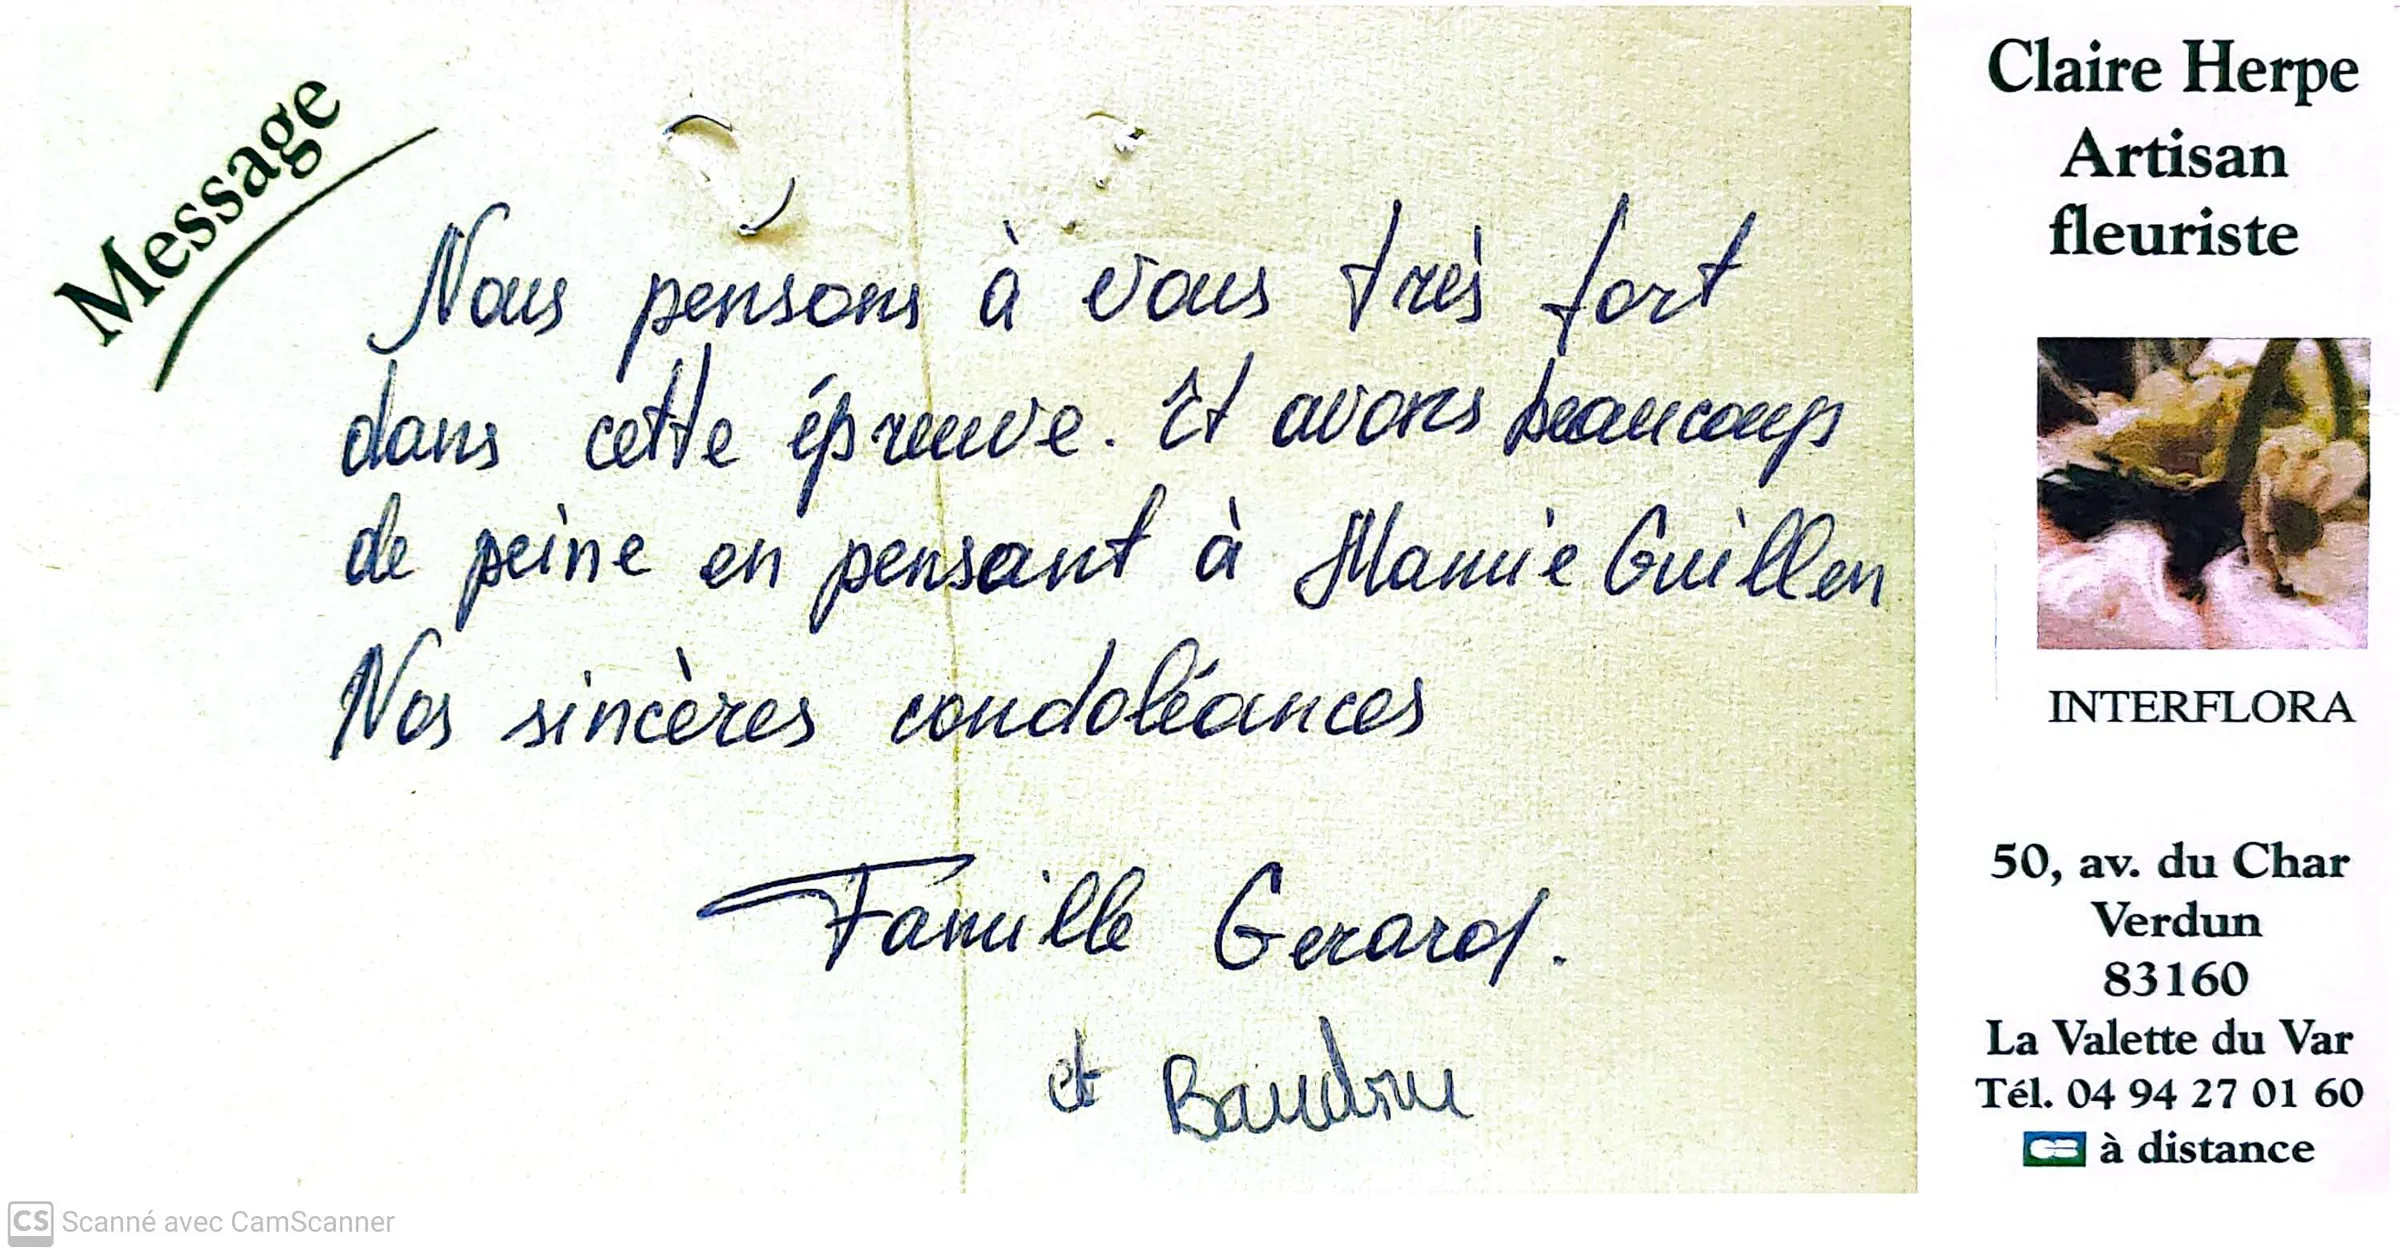 Message
Nous pensons à vous très fort
dans cette épreuve. Et avons beaucoup
de peine en pensant à Mamie Guillen
Nos sincères condoléances
Famille Gerard.
et
Claire Herpe
Artisan
fleuriste
INTERFLORA
50, av. du Char
Verdun
83160
La Valette du Var
Tél. 04 94 27 01 60
CB à distance
CS Scanné avec CamScanner